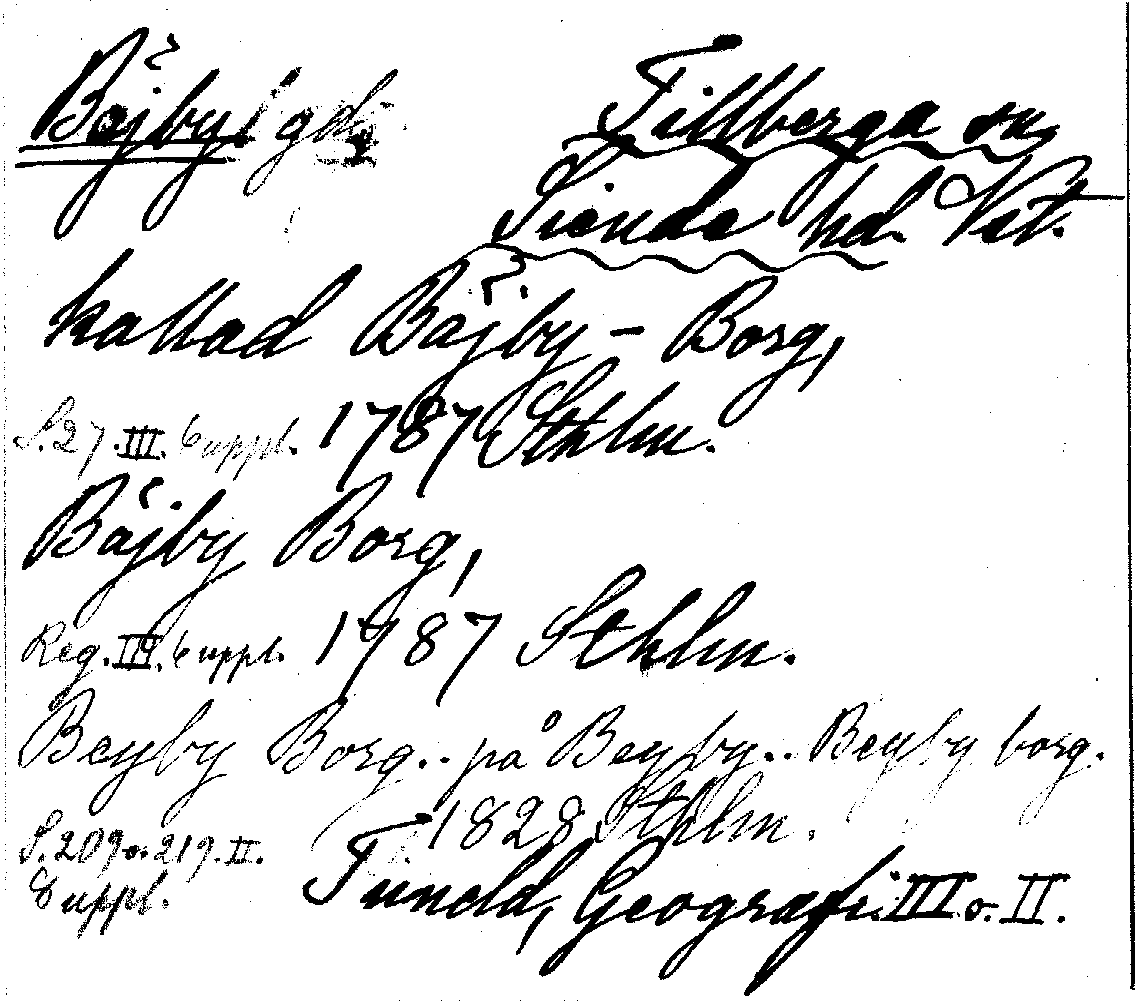 Bäjby gd
Tillberga sn,
Siende hd. Vst.
kallad Bäjby - Borg,
S. 27. III. 6 uppl. 1787 Sthlm.
Bäjby Borg,
Reg. III. 6 uppl. 1787 Sthlm.
Beyby Borg.. på Beyby.. Beyby borg.
S. 209 o. 219. II. 1828 Sthlm.
8 uppl. Tuneld, Geografi III o. II.